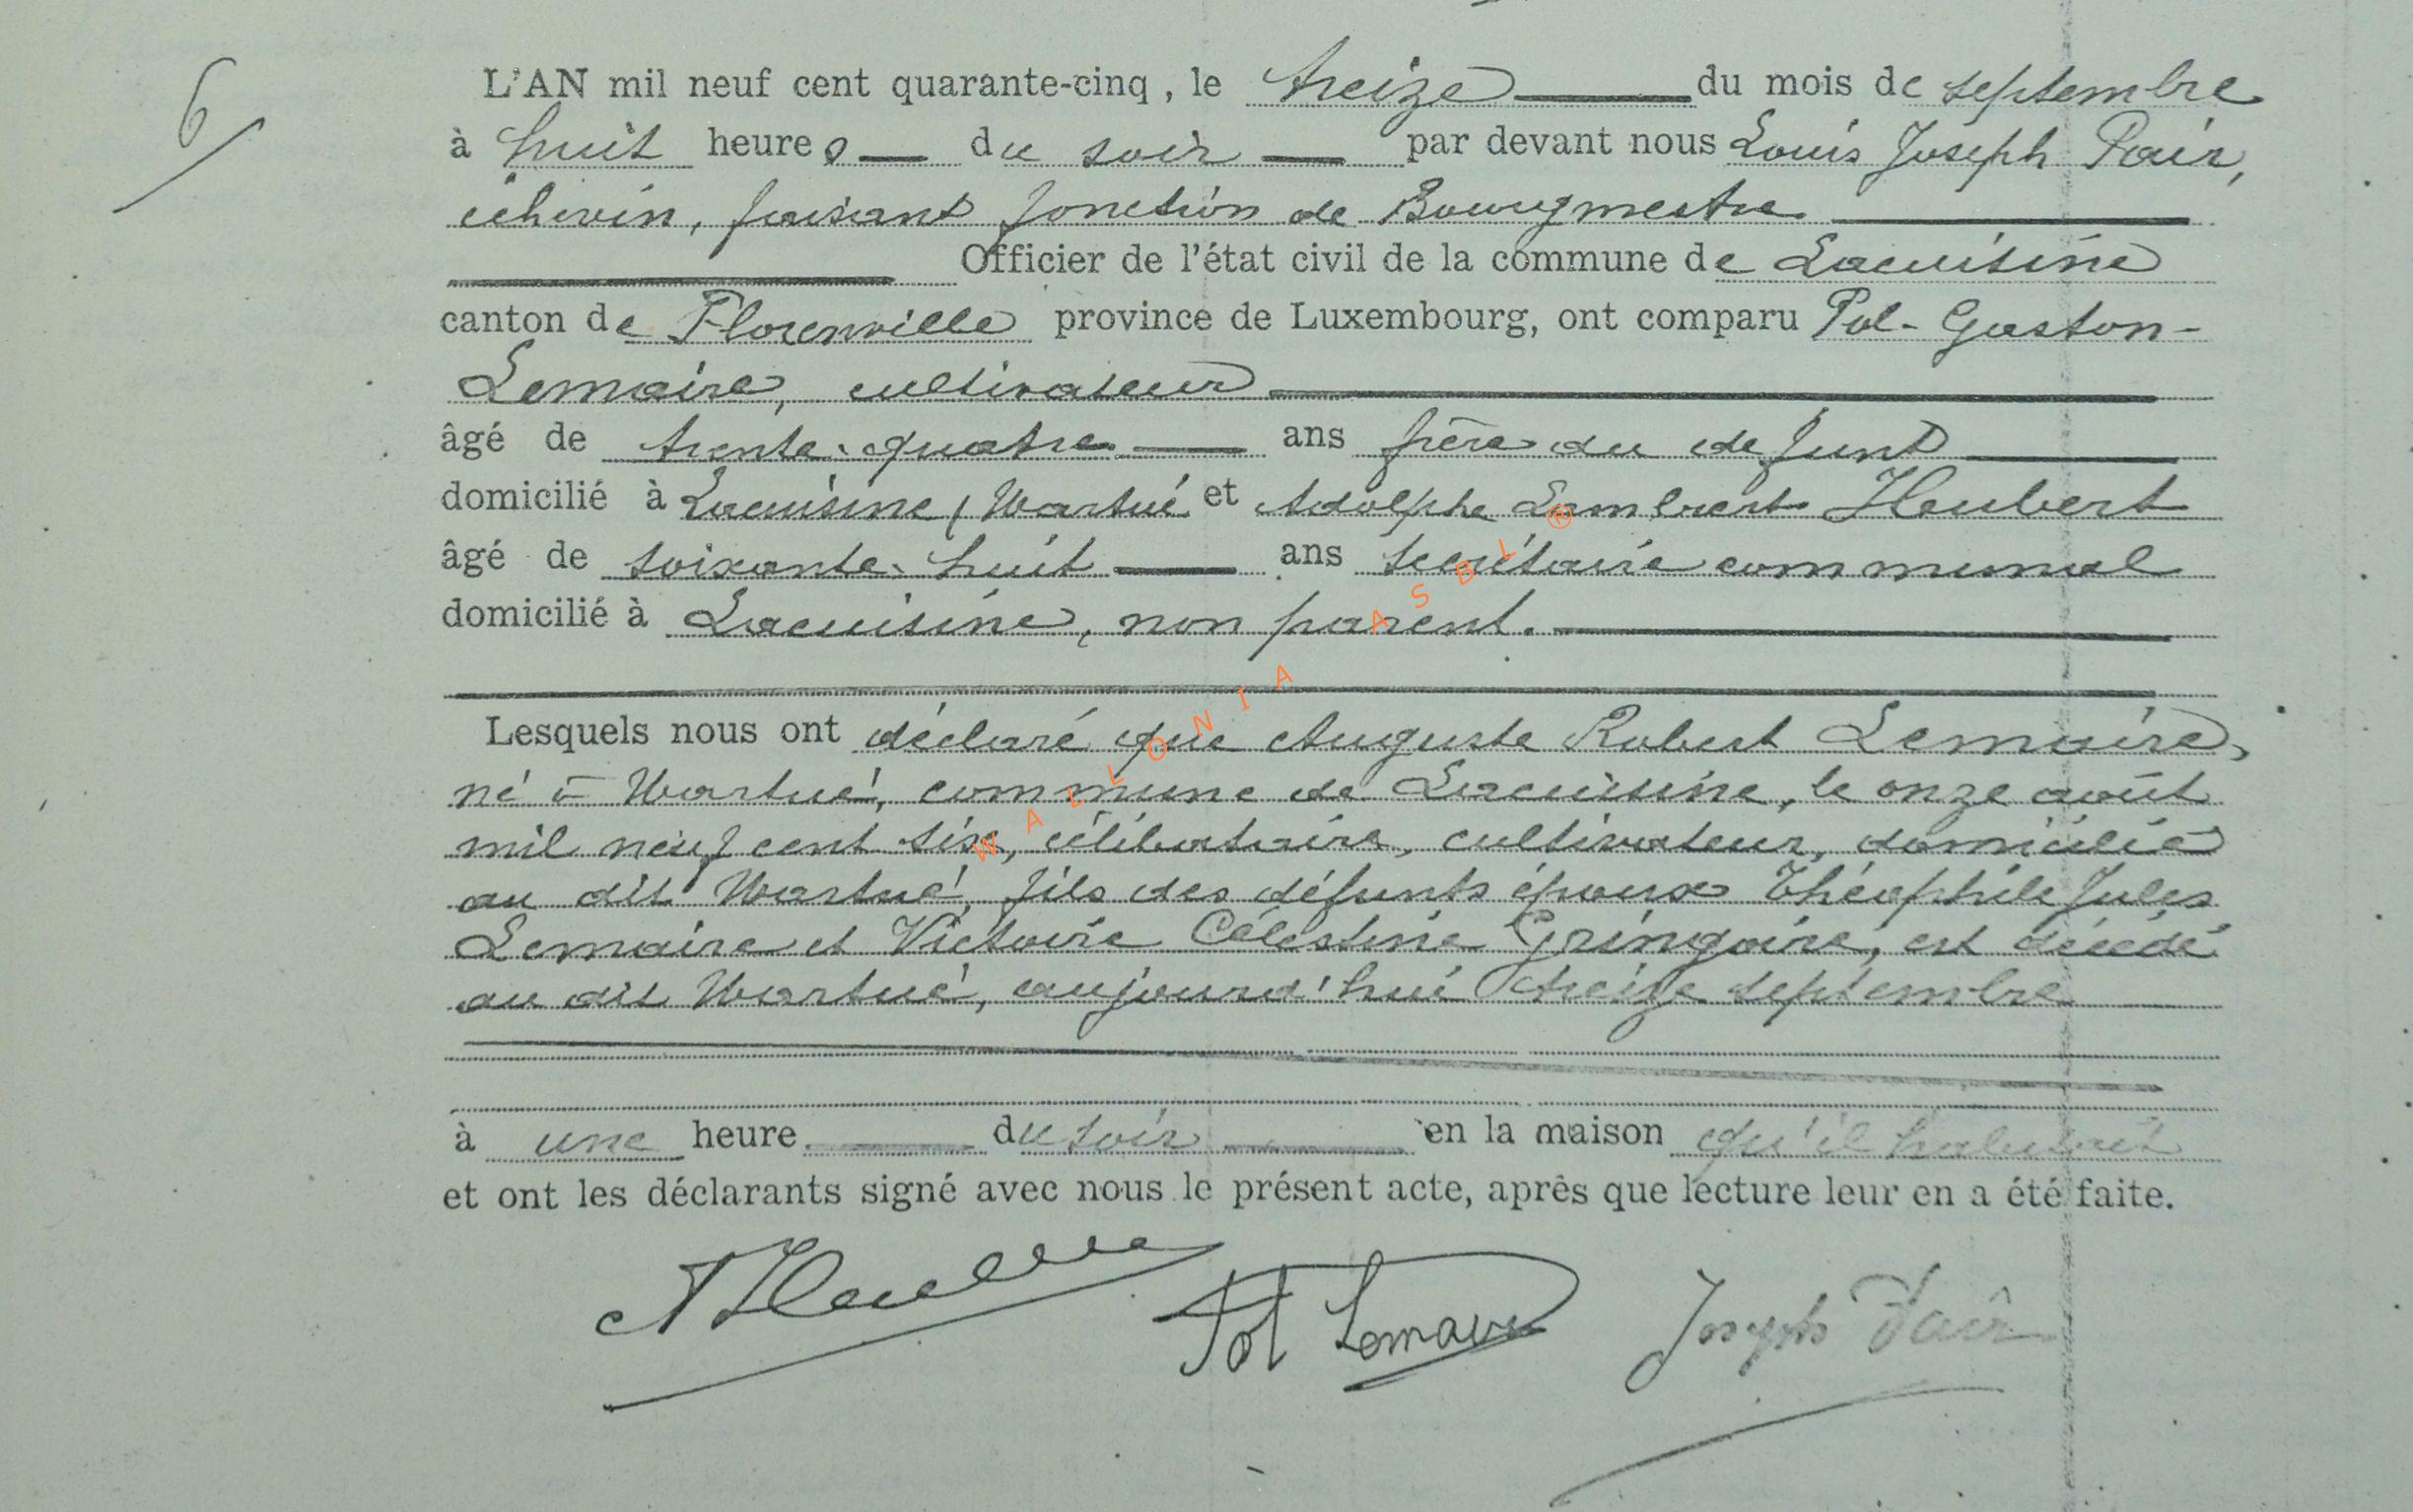 6
L'AN mil neuf cent quarante-cinq, le treize du mois de septembre
à huit heures du soir par devant nous Louis Joseph Pair,
échevin, faisant fonction de Bourgmestre
Officier de l'état civil de la commune de Lacuisine
canton de Florenville province de Luxembourg, ont comparu Pol-Gaston-
Lemaire, cultivateur
âgé de trente-quatre ans frère du défunt
domicilié à Lacuisine (Martué et Adolphe Lambert Heubert
âgé de soixante-huit ans secrétaire communal
domicilié à Lacuisine, non parent.
Lesquels nous ont déclaré que Auguste Robert Lemaire,
né à Martué, commune de Lacuisine, le onze août
mil neuf cent six, célibataire, cultivateur, domicilié
au dit Martué, fils des défunts époux Théophile Jules
Lemaire et Victoire Célestine Gringoire, est décédé
au dit Martué, aujourd'hui treize septembre
à une heure du soir en la maison qu'il habitait
et ont les déclarants signé avec nous le présent acte, après que lecture leur en a été faite.
Pol Lemaire Joseph Pair
WALLONIA ASBL ®